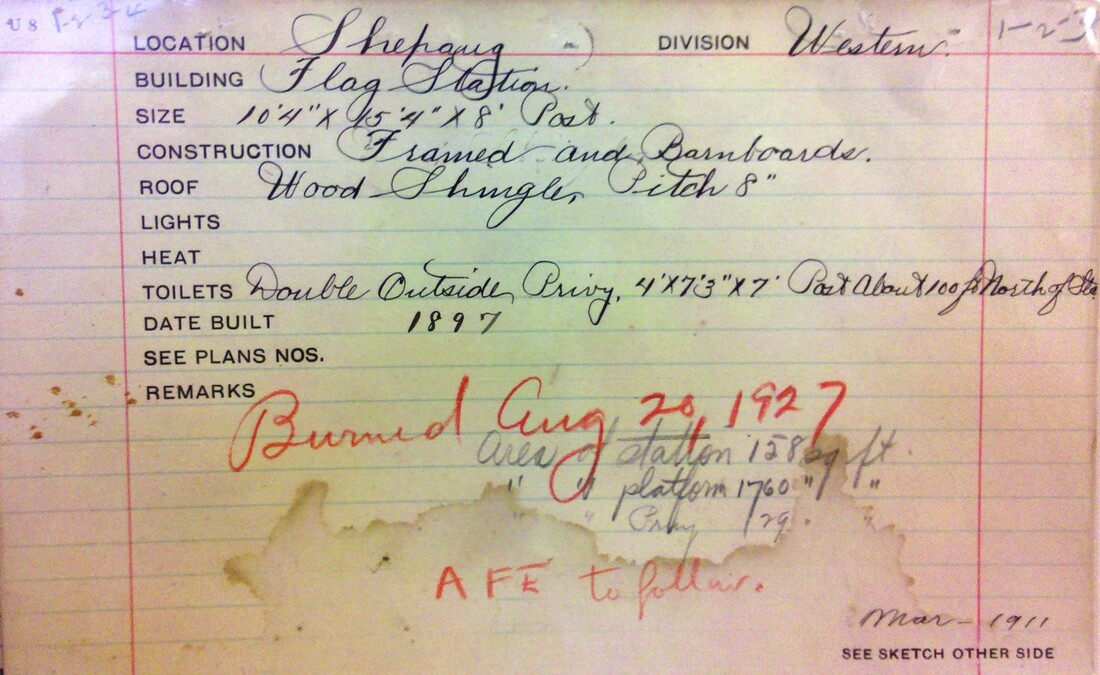 LOCATION Shepaug DIVISION Western. 1-2-3
BUILDING Flag Station.
SIZE 10'4" X 15'4" X 8' Post.
CONSTRUCTION Framed and Barnboards.
ROOF Wood Shingles, Pitch 8"
LIGHTS
HEAT
TOILETS Double Outside Privy, 4'X7'3"X7' Post About 100 ft North of Sta
DATE BUILT 1897
SEE PLANS NOS.
REMARKS
Burned Aug 20, 1927
Area of station 158 sq ft.
" " platform 1760 " "
" " Privy 29 " "
A F E to follow.
Mar - 1911
SEE SKETCH OTHER SIDE